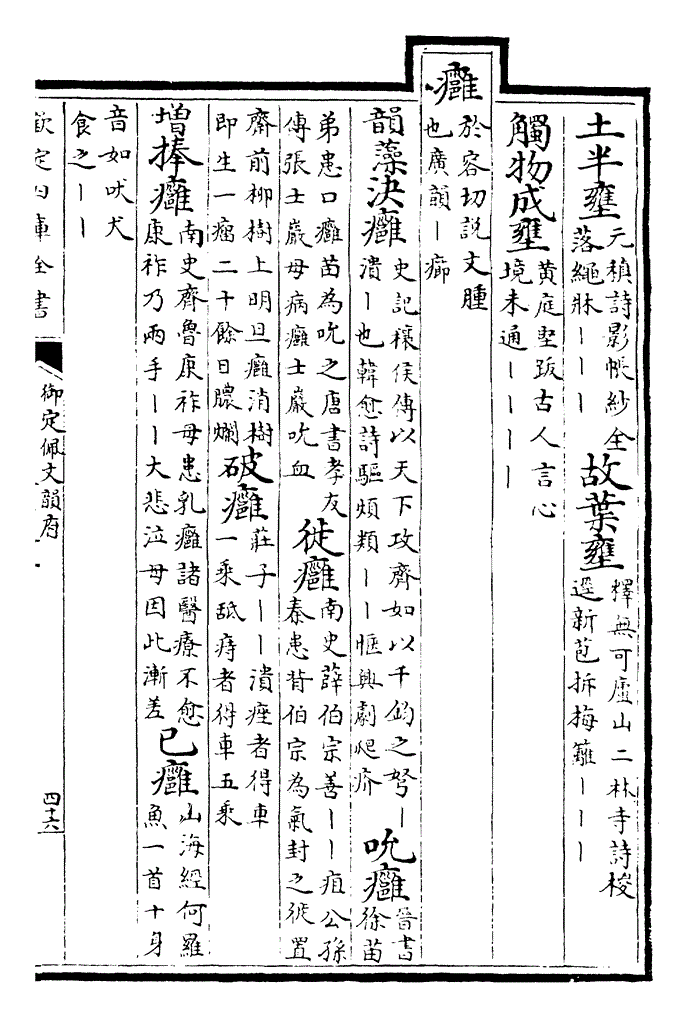 土半壅 元稹詩影帳紗全落繩牀丨丨丨 故葉壅 釋無可廬山二林寺詩梭逕新苞拆梅籬丨丨丨
觸物成壅 黄庭堅跋古人言心境未通丨丨丨丨
癰 於容切説文腫也廣韻丨癤
韻藻決癰 史記穰侯傳以天下攻齊如以千鈞之弩丨潰丨也韓愈詩驅頻類丨丨愜興劇爬疥 吮癰 晉書徐苗
弟患口癰苗為吮之唐書孝友傳張士巖母病癰士巖吮血 徙癰 南史薛伯宗善丨丨疽公孫泰患背伯宗為氣封之徙置
齋前柳樹上明旦癰消樹即生一瘤二十餘日膿爛 破癰 莊子丨丨潰痤者得車一乘舐痔者得車五乘
增捧癰 南史齊魯康祚母患乳癰諸醫療不愈康祚乃兩手丨丨大悲泣母因此漸差 已癰 山海經何羅魚一首十身
音如吠犬食之丨丨
欽定四庫全書 御定佩文韻府 四十六